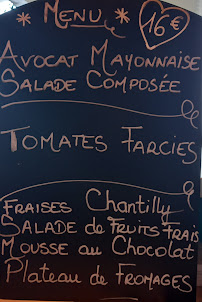 * MENU * 16€
AVOCAT MAYONNAISE
SALADE COMPOSÉE
TOMATES FARCIES
FRAISES Chantilly
SALADE de FRUITS FRAIS
MOUSSE au CHOCOLAT
PLATEAU de FROMAGES